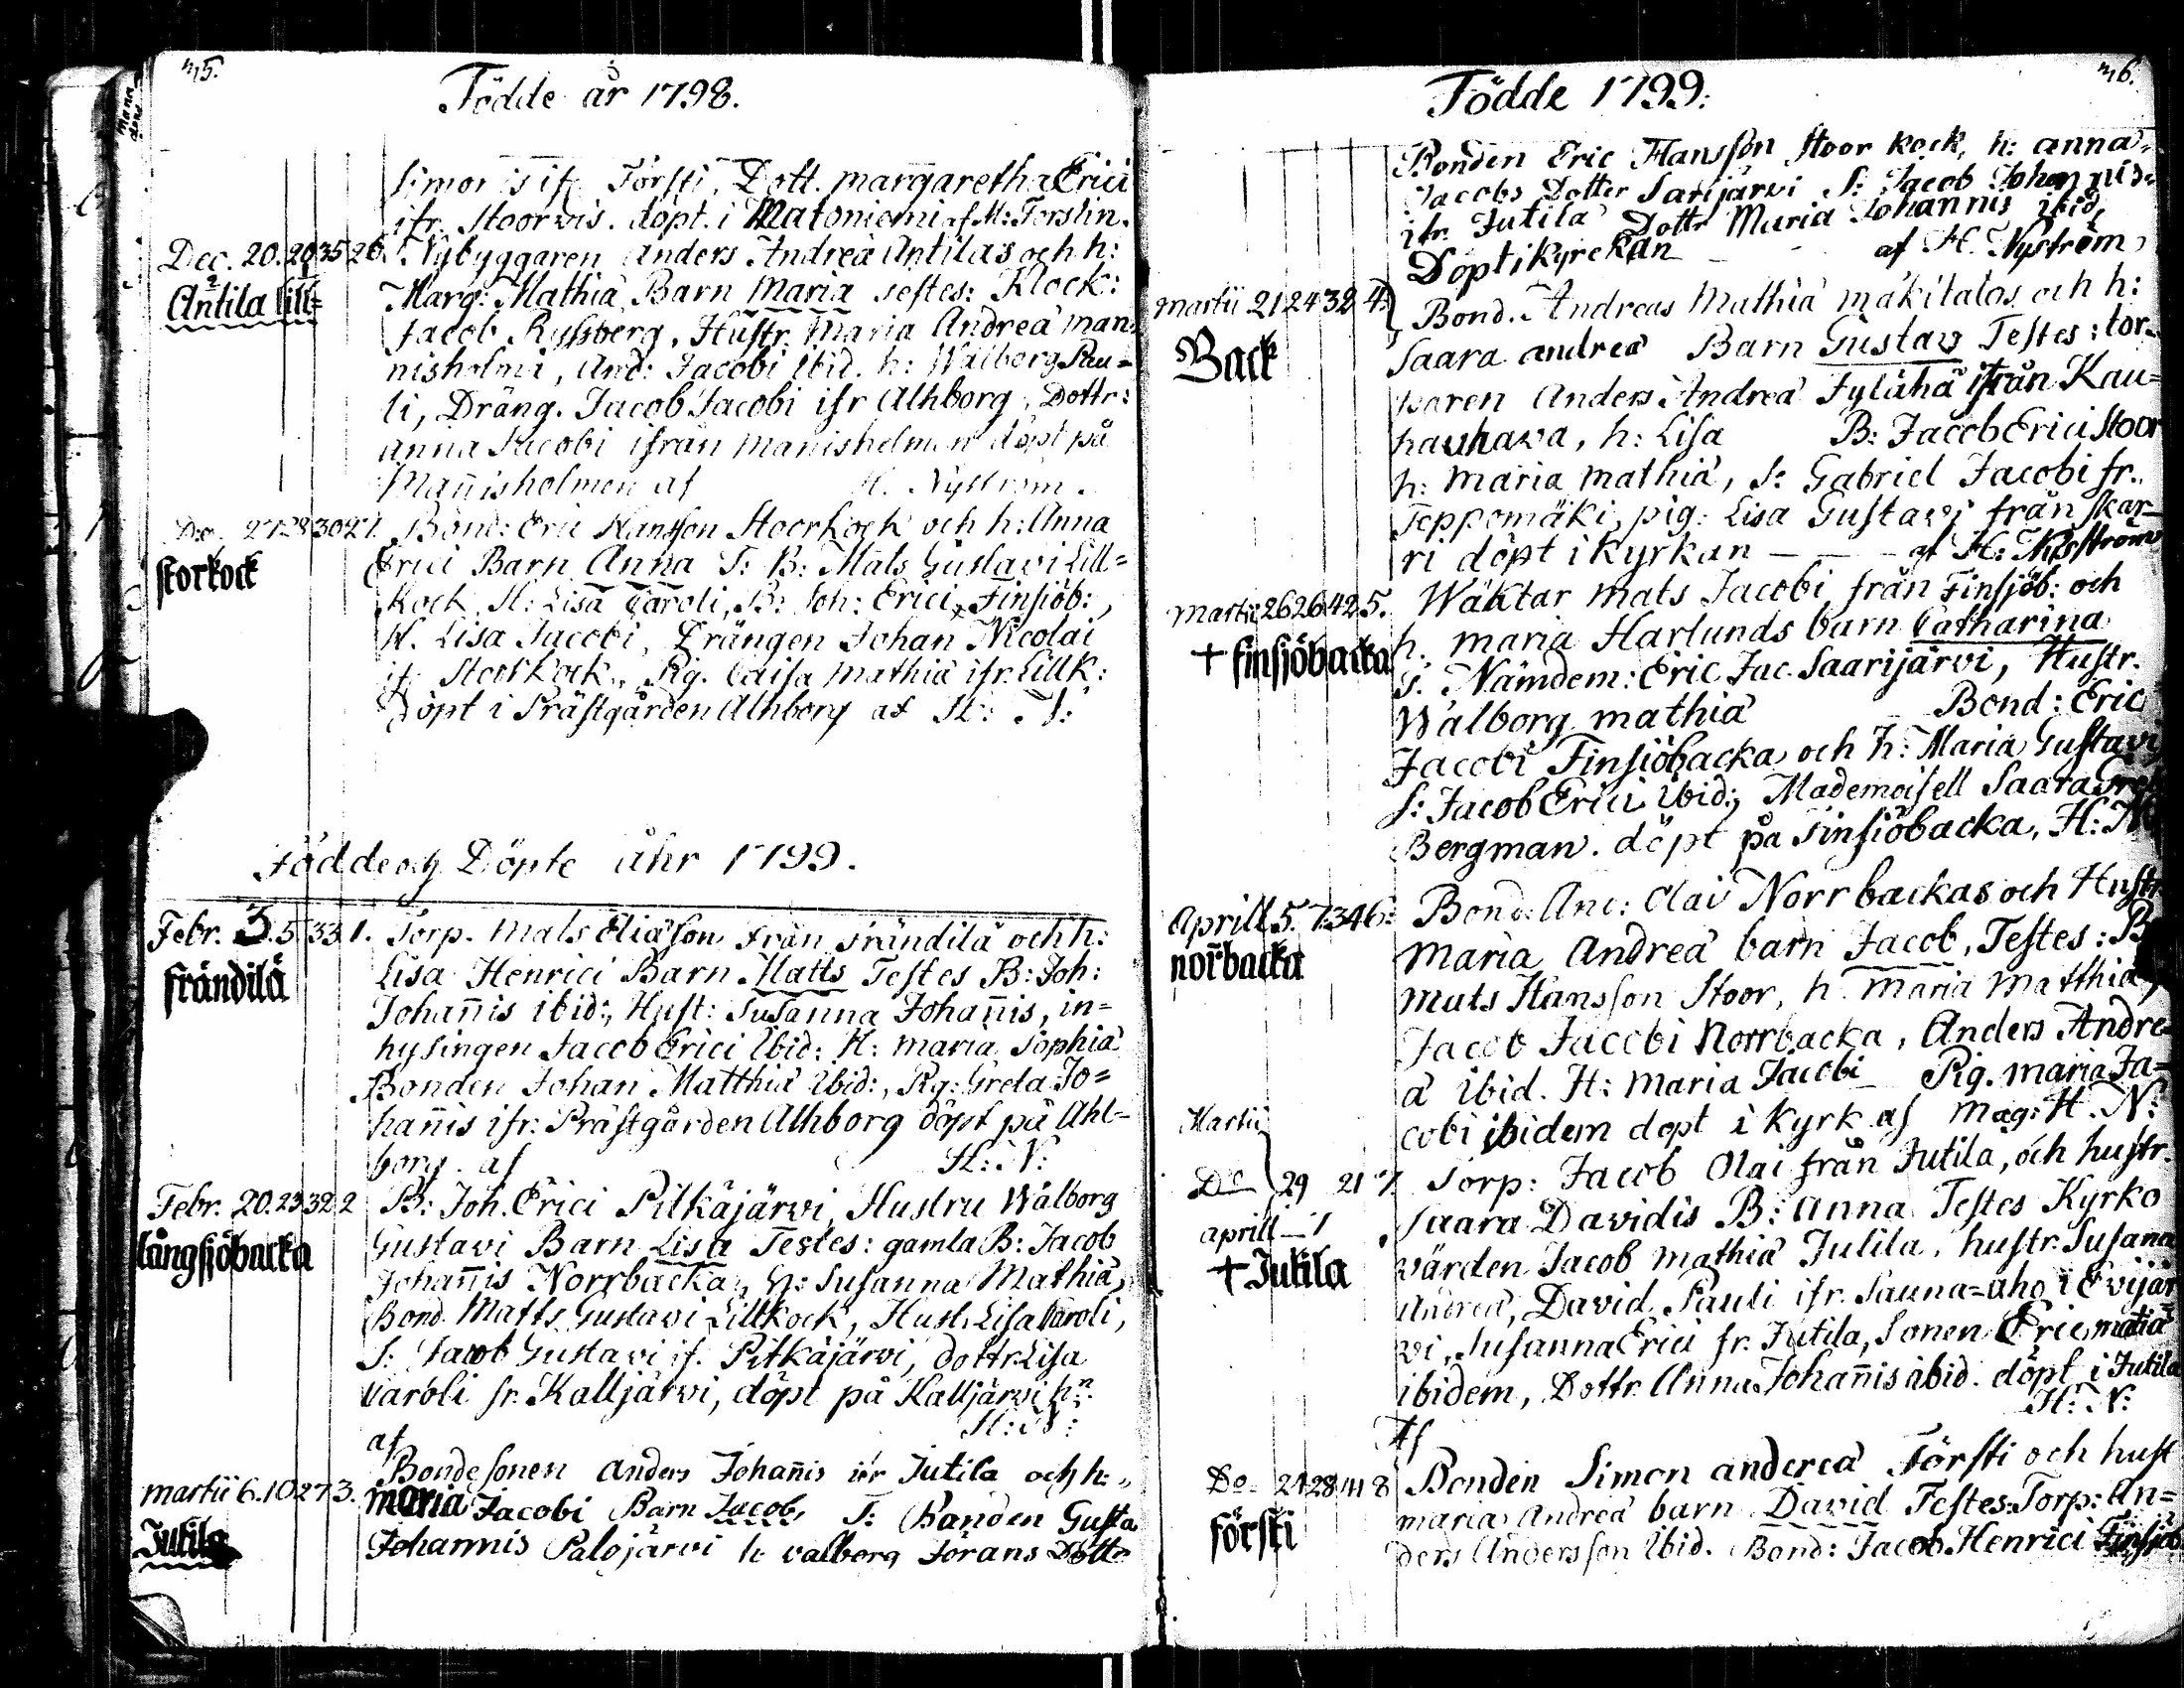 Födde år 1798.
ifr. Förſti, Dott. margaretha Erici
ifr. Stoorvis. döpt. i Matoniemi af M: Forslin.
Dec. 20. 20 35 26. Nybyggaren Anders Andreä Antilas och h:
Antila lill=
Marg: Mathiä Barn Maria testes: Klock:
Jacob Ryſsberg, Huſtr. Maria Andreä Man=
nisholmi, And: Jacobi ibid. h: Walborg Pau=
li, Dräng. Jacob Jacobi ifr Alhborg, Dottr:
anna Jacobi ifrån manisholmen döpt på
Mañisholmen af H. Nyström.
Do. 27 28 30 27. Bond: Eric Hanſson Stoorkock och h: Anna
storkock
Erici Barn Anna T: B: Mats Gustavi Lill=
kock, H: Lisa Caroli, B: Joh: Erici, Finſiöb:,
H. Lisa Jacobi, Drängen Johan Nicolai
if. Stoorkock, Pig. Caisa Mathiä ifr. Lillk:
Döpt i Präſtgården Alhborg af H: N:
Födde och Döpte åhr 1799.
Febr. 3. 5. 33. 1. Torp. Mats Eliäſon från Frändilä och h:
frändilä
Lisa Henrici Barn Matts Teſtes B: Joh:
Johañis ibid:, Huſt: Susanna Johañis, in=
hysingen Jacob Erici ibid: H: maria Sophia
Bonden Johan Matthiä ibid:, Pig: Greta Jo=
hañis ifr. Präſtgården Alhborg döpt på Ahl=
borg. af H: N:
Febr. 20. 23 32 2 B: Joh. Erici Pitkäjärvi, Hustru Walborg
långſjöbacka
Gustavi Barn Lisa Testes: gamla B: Jacob
Johañis Norrbacka, h: Susanna Mathiä,
Bond. Matts Gustavi Lillkock, Hust. Lisa Caroli,
S: Jacob Gustavi if. Pitkäjärvi, dottr. Lisa
Caroli fr. Kalljärvi, döpt på Kalljärvi hn
af H: N:
martii 6. 10 27 3. Bondeſonen Anders Johañis ifr Jutila och h:
Jutila
maria Jacobi Barn Jacob, T: Banden Gusta
Johannis Palojärvi h valborg Jörans Dotte
Födde 1799.
Bonden Eric Hanſſon Stoor kock, h: anna
Jacobs Dotter Sarijärvi S: Jacob
ifr. Jutila Dottr Maria Johannis ibid,
Döpt i Kyrckan af H. Nyström
martii 21 24 32 4. Bond. Andreas Mathiä mäkitalos och h:
Back
Saara andreä Barn Gustav Teſtes: tor-
paren Anders Andreä Jylähä ifrån Kau=
hauhava, h: Lisa B: Jacob Erici Stoor
h: maria mathiä, S: Gabriel Jacobi fr.
Teppomäki, pig: Lisa Guſtavi från Skar-
ri döpt i Kyrkan — — af H: Nyström
Martii 26 26 42 5. Wäktar Mats Jacobi från Finſjöb: och
† finſjöbacka
h. maria Harlunds barn Catharina
S. Nämdem: Eric Jac. Saarijärvi, Huſtr.
Walborg mathiä Bond: Eric
Jacobi Finſiöbacka och h: Maria Guſtavi
S: Jacob Erici ibid:, Mademoiſell Saara
Bergman. döpt på Finſiöbacka, H: N
Aprill 5. 7 34 6. Bond: And: Olai Norrbackas och Huſtr
nor̃backa
Maria Andreä barn Jacob, Teſtes: B
Mats Hansſon Stoor, h. Maria Matthiä,
Jacob Jacobi Norrbacka, Anders Andre
ä ibid. H: Maria Jacobi Pig. maria Ja=
cobi ibidem döpt i Kyrk af Mag: H. N:
Martii
Do 29 21 7 Torp: Jacob Olai från Jutila, och huſtr.
aprill 1
† Jutila
Saara Davidis B: Anna Teſtes Kyrko
värden Jacob mathiä Jutila, huſtr. Susana
Andreä, David Pauli ifr. Sauna=aho i Evijär
vi, Susanna Erici fr. Jutila, Sonen Eric matiä
ibidem, Dottr. Anna Johañis ibid. döpt i Jutila
Af H: N:
Do 27 28 41 8 Bonden Simon andereä Förſti och huſt
förſti
maria Andreä barn David Teſtes: Torp: An=
ders Andersſon ibid. Bond: Jacob Henrici Finſjö